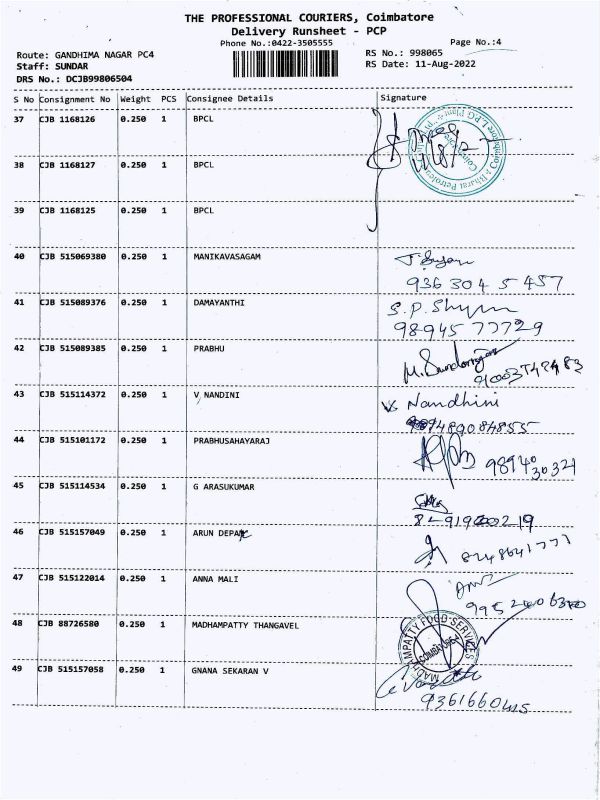 THE PROFESSIONAL COURIERS, Coimbatore
Delivery Runsheet - PCP
Phone No.:0422-3505555
Page No.:4
Route: GANDHIMA NAGAR PC4
RS No.: 998065
Staff: SUNDAR
RS Date: 11-Aug-2022
DRS No.: DCJB99806504
S No Consignment No Weight PCS Consignee Details Signature
37 CJB 1168126 0.250 1 BPCL
38 CJB 1168127 0.250 1 BPCL
39 CJB 1168125 0.250 1 BPCL
40 CJB 515069380 0.250 1 MANIKAVASAGAM
936 304 5 457
41 CJB 515089376 0.250 1 DAMAYANTHI S.P. Shyam
98945 77729
42 CJB 515089385 0.250 1 PRABHU
43 CJB 515114372 0.250 1 V NANDINI Nandhini
44 CJB 515101172 0.250 1 PRABHUSAHAYARAJ
9894030321
45 CJB 515114534 0.250 1 G ARASUKUMAR
46 CJB 515157049 0.250 1 ARUN DEPAK
8248641771
47 CJB 515122014 0.250 1 ANNA MALI
48 CJB 88726580 0.250 1 MADHAMPATTY THANGAVEL
MADHAMPATTY FOOD SERVICES
COIMBATORE
49 CJB 515157058 0.250 1 GNANA SEKARAN V